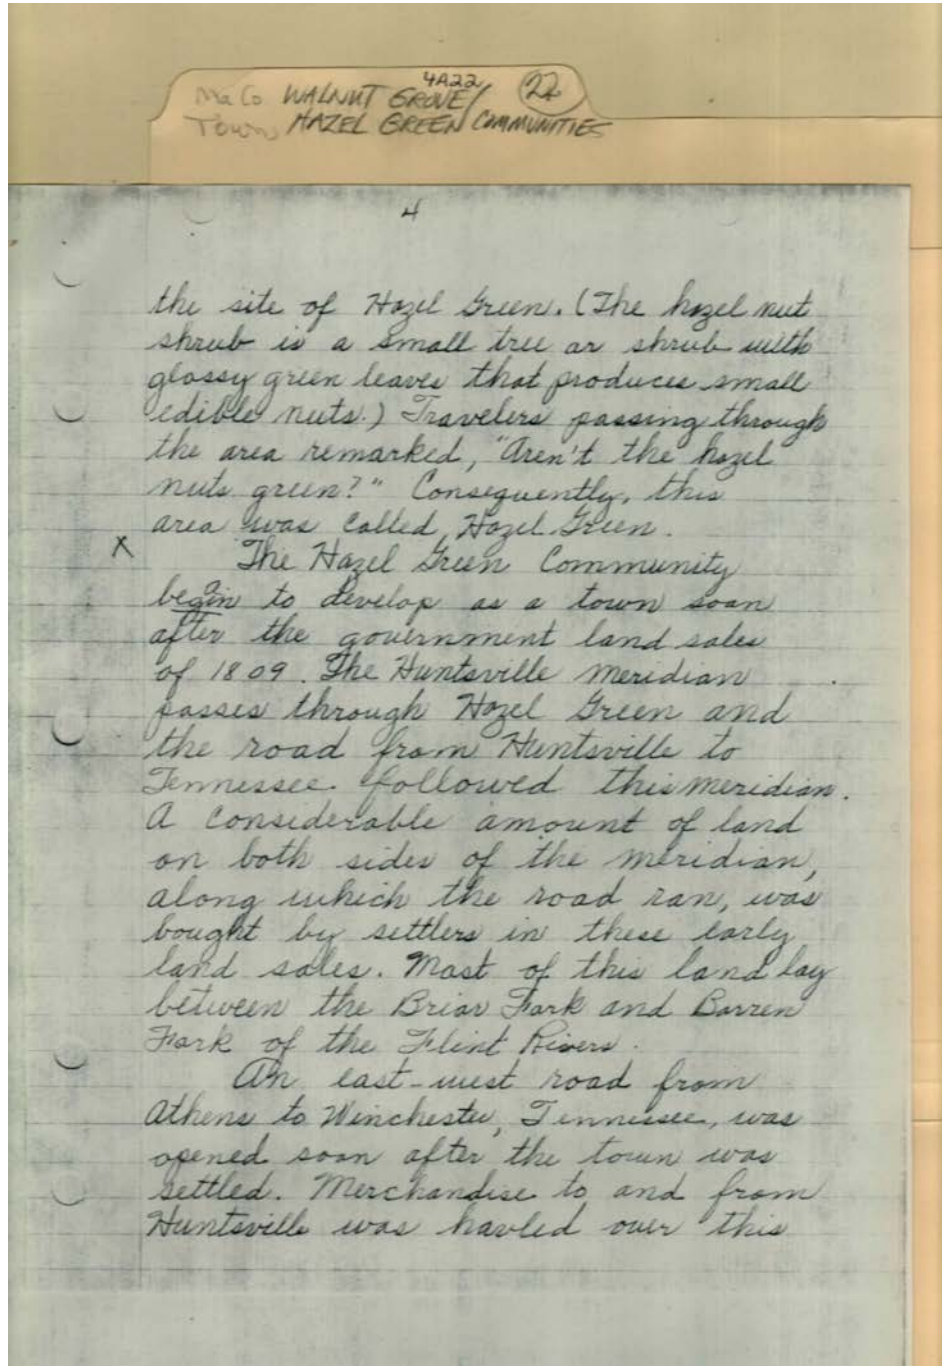 4A22
Ma Co WALNUT GROVE/ 22
Town HAZEL GREEN COMMUNITIES
4
the site of Hazel Green. (The hazel nut
shrub is a small tree or shrub with
glossy green leaves that produces small
edible nuts.) Travelers passing through
the area remarked, "Aren't the hazel
nuts green?" Consequently, this
area was called Hazel Green.
X The Hazel Green Community
a
begin to develop as a town soon
after the government land sales
of 1809. The Huntsville meridian
passes through Hazel Green and
the road from Huntsville to
Tennessee followed this meridian.
A considerable amount of land
on both sides of the meridian,
along which the road ran, was
bought by settlers in these early
land sales. Most of this land lay
between the Briar Fork and Barren
Fork of the Flint Rivers.
An east-west road from
Athens to Winchester, Tennessee, was
opened soon after the town was
settled. Merchandise to and from
Huntsville was havled over this